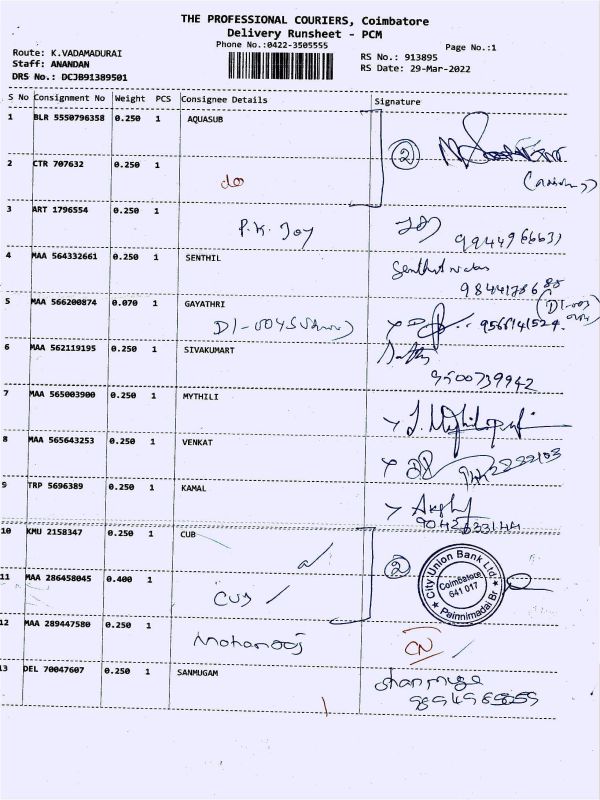 THE PROFESSIONAL COURIERS, Coimbatore
Delivery Runsheet - PCM
Phone No.:0422-3505555
Page No.:1
Route: K.VADAMADURAI
Staff: ANANDAN
DRS No.: DCJB91389501
RS No.: 913895
RS Date: 29-Mar-2022
S No Consignment No Weight PCS Consignee Details Signature
1 BLR 5550796358 0.250 1 AQUASUB
2
2 CTR 707632 0.250 1
do
3 ART 1796554 0.250 1
P.K. Joy
4 MAA 564332661 0.250 1 SENTHIL
5 MAA 566200874 0.070 1 GAYATHRI
6 MAA 562119195 0.250 1 SIVAKUMART
9500739942
7 MAA 565003900 0.250 1 MYTHILI
8 MAA 565643253 0.250 1 VENKAT
9 TRP 5696389 0.250 1 KAMAL
10 KMU 2158347 0.250 1 CUB
2
City Union Bank Ltd.
Coimbatore
641 017
Painnimadai Br
11 MAA 286458045 0.400 1
CUB
12 MAA 289447580 0.250 1
CN
13 DEL 70047607 0.250 1 SANMUGAM